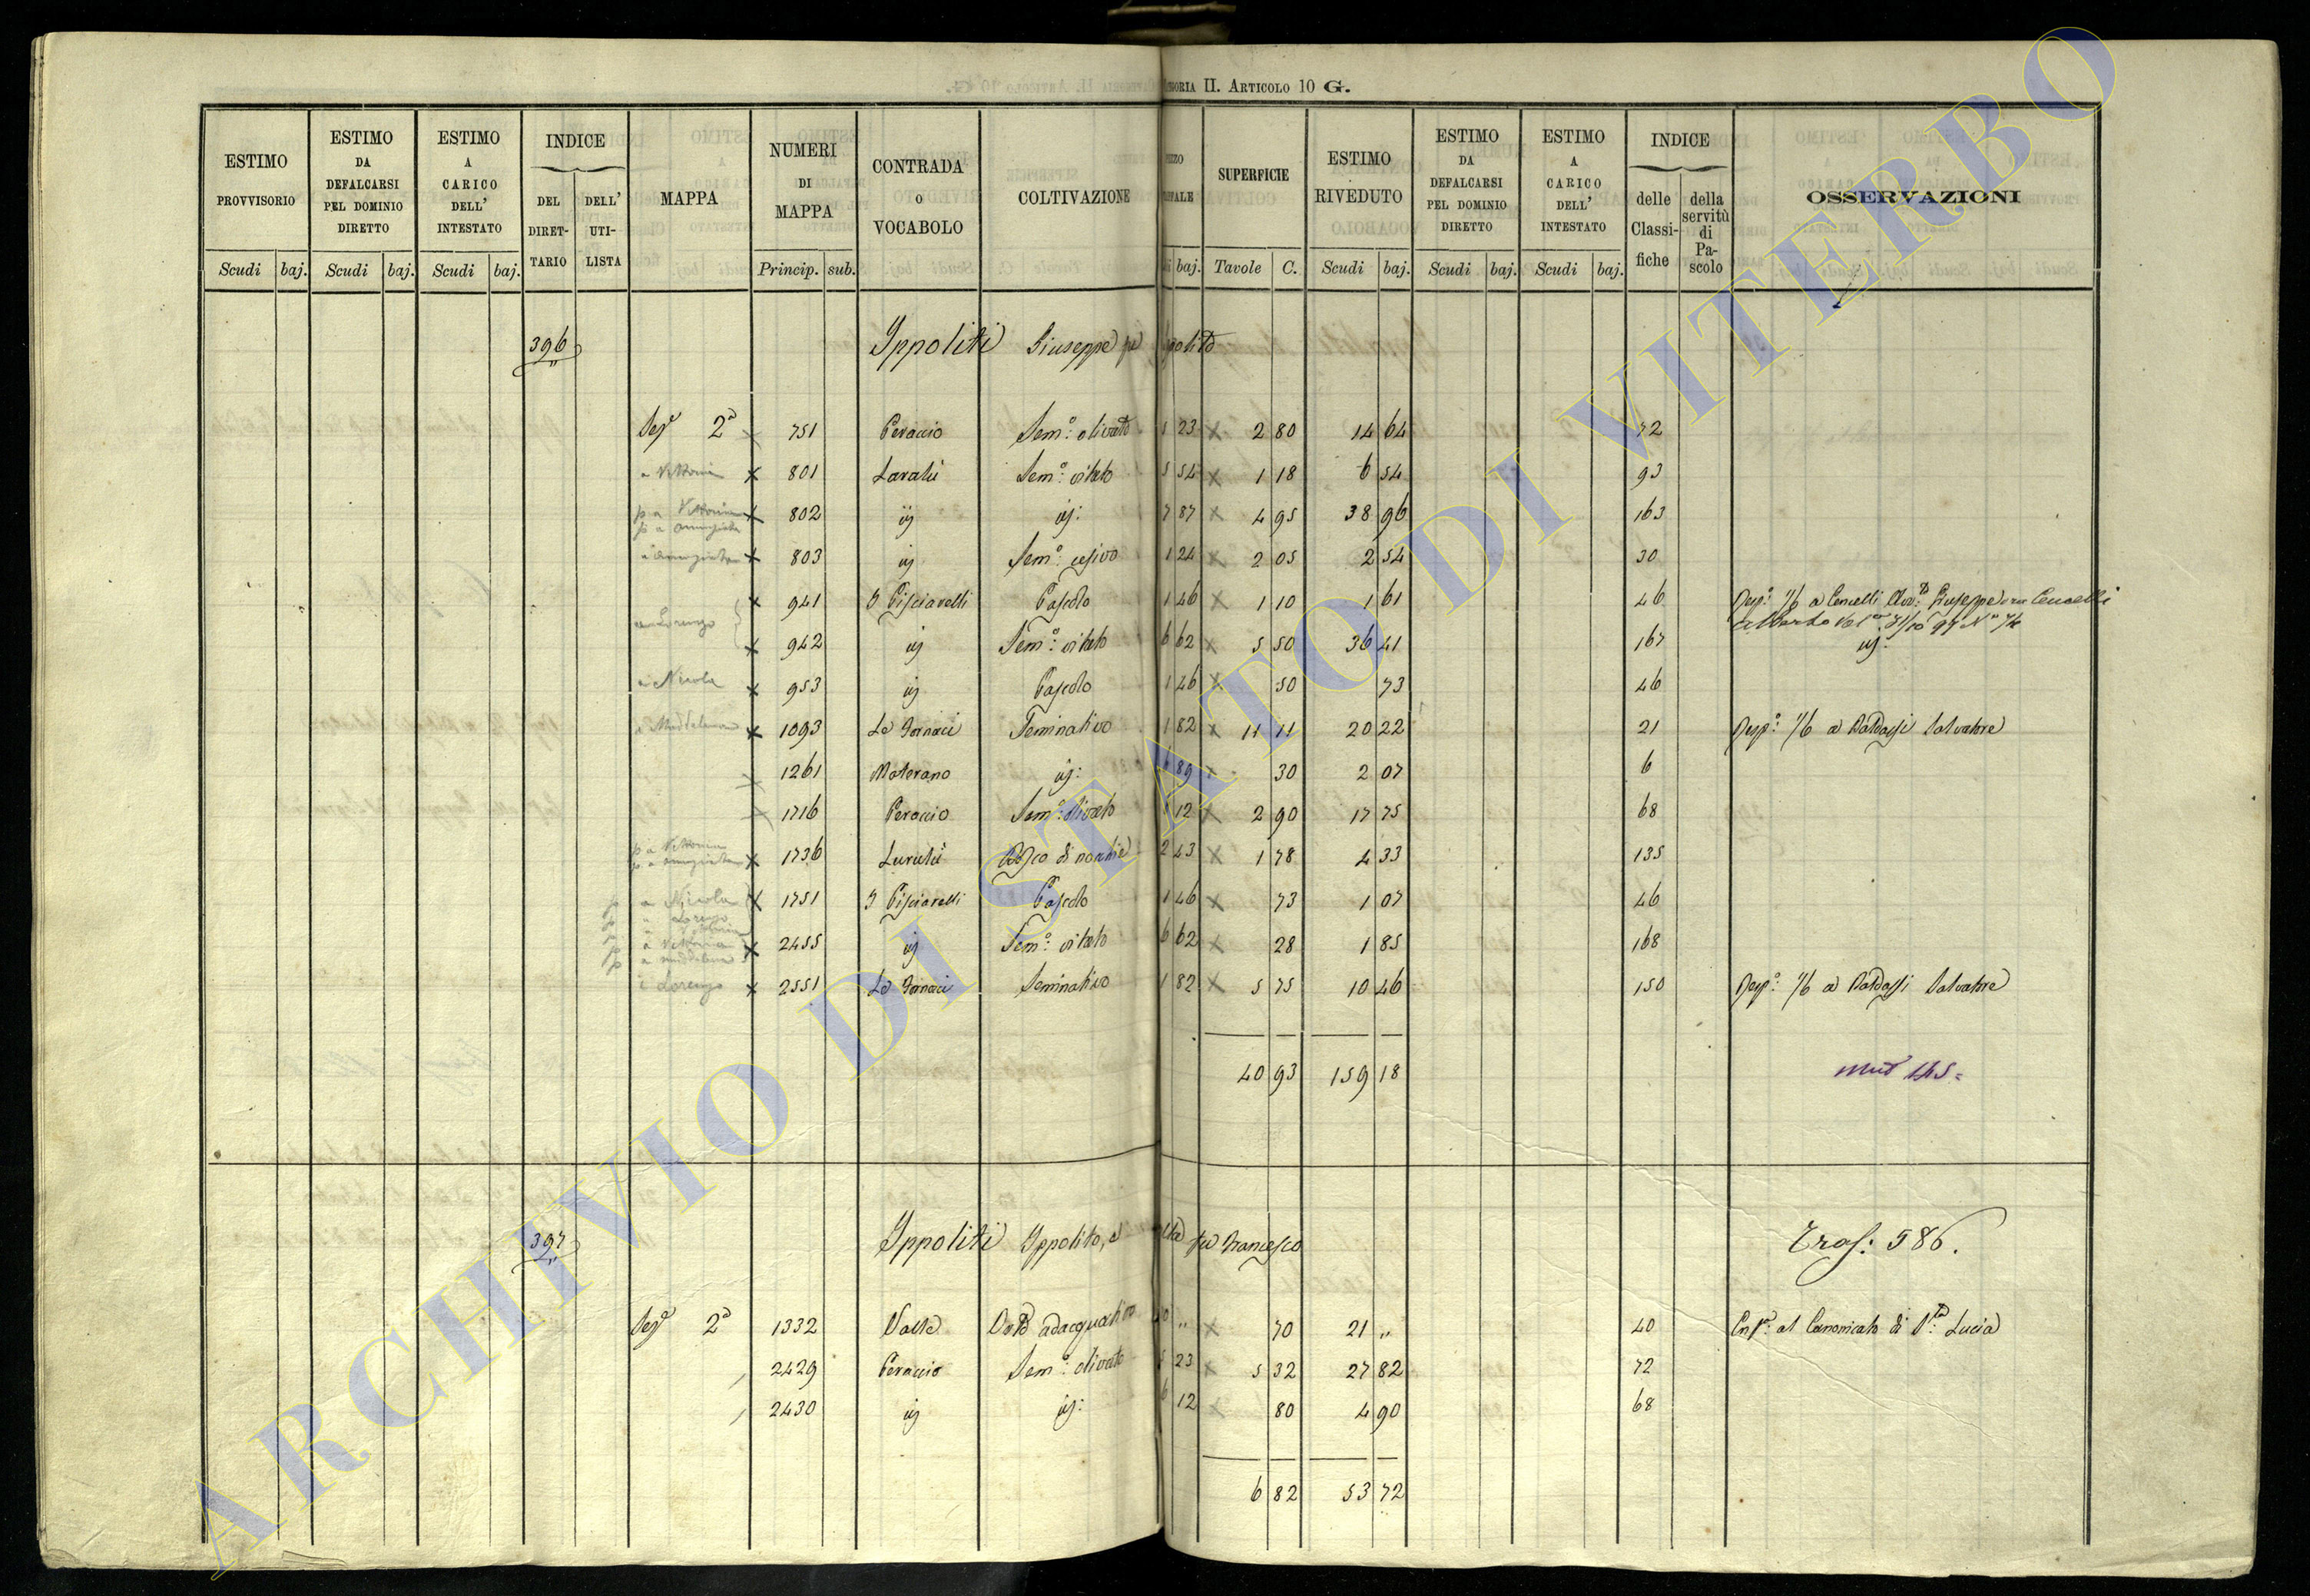 CATEGORIA II. ARTICOLO 10 G.
ESTIMO PROVVISORIO ESTIMO DA DEFALCARSI PEL DOMINIO DIRETTO ESTIMO A CARICO DELL' INTESTATO INDICE DEL DIRETTARIO DELL' UTILISTA MAPPA NUMERI DI MAPPA CONTRADA O VOCABOLO COLTIVAZIONE SUPERFICIE ESTIMO RIVEDUTO ESTIMO DA DEFALCARSI PEL DOMINIO DIRETTO ESTIMO A CARICO DELL' INTESTATO INDICE delle Classifiche della servitù di Pascolo OSSERVAZIONI
Scudi baj. Scudi baj. Scudi baj. Princip. sub. baj. Tavole C. Scudi baj. Scudi baj. Scudi baj.
396 Ippoliti Giuseppe fu Ippolito
Sez.e 2a 751 Peraccio Sem.o olivato 5 23 2 80 14 64 72
a Vittoria 801 Sem.o vitato 5 54 1 18 6 54 93
p a Vittoria
p a Annunziata 802 ij ij: 7 87 4 95 38 96 163
a Annunziata 803 ij Sem.o 1 24 2 05 2 54 30
941 I Pisciarelli Pascolo 1 46 1 10 1 61 46 Resp.o 1/6 a Cencelli Giuseppe ora Cencelli
a Lorenzo Alberto
942 ij Sem.o vitato 6 62 5 50 36 41 167 ij:
a Nicola 953 ij Pascolo 1 46 50 73 46
a Maddalena 1093 Le Fornaci Seminativo 1 82 11 11 20 22 21 Resp.o 1/6 a Baldassi Salvatore
1261 Materano ij: 6 89 30 2 07 6
1716 Peraccio Sem.o olivato 6 12 2 90 17 75 68
p a Vittoria
p a Annunziata 1736 2 43 1 78 4 33 135
p a Nicola 1751 I Pisciarelli Pascolo 1 46 73 1 07 46
p a Lorenzo
p a Vittoria 2455 ij Sem.o vitato 6 62 28 1 85 168
p a Maddalena
a Lorenzo 2551 Le Fornaci Seminativo 1 82 5 75 10 46 150 Resp.o 1/6 a Baldassi Salvatore
40 93 159 18
397 Ippoliti Ippolito, e fu Francesco Tras: 586.
Sez.e 2a 1332 Valle Orto adacquativo 30 „ 70 21 „ 40 Enf.a al Canonicato di S.ta Lucia
2429 Peraccio Sem.o olivato 5 23 5 32 27 82 72
2430 ij ij: 6 12 80 4 90 68
6 82 53 72
ARCHIVIO DI STATO DI VITERBO